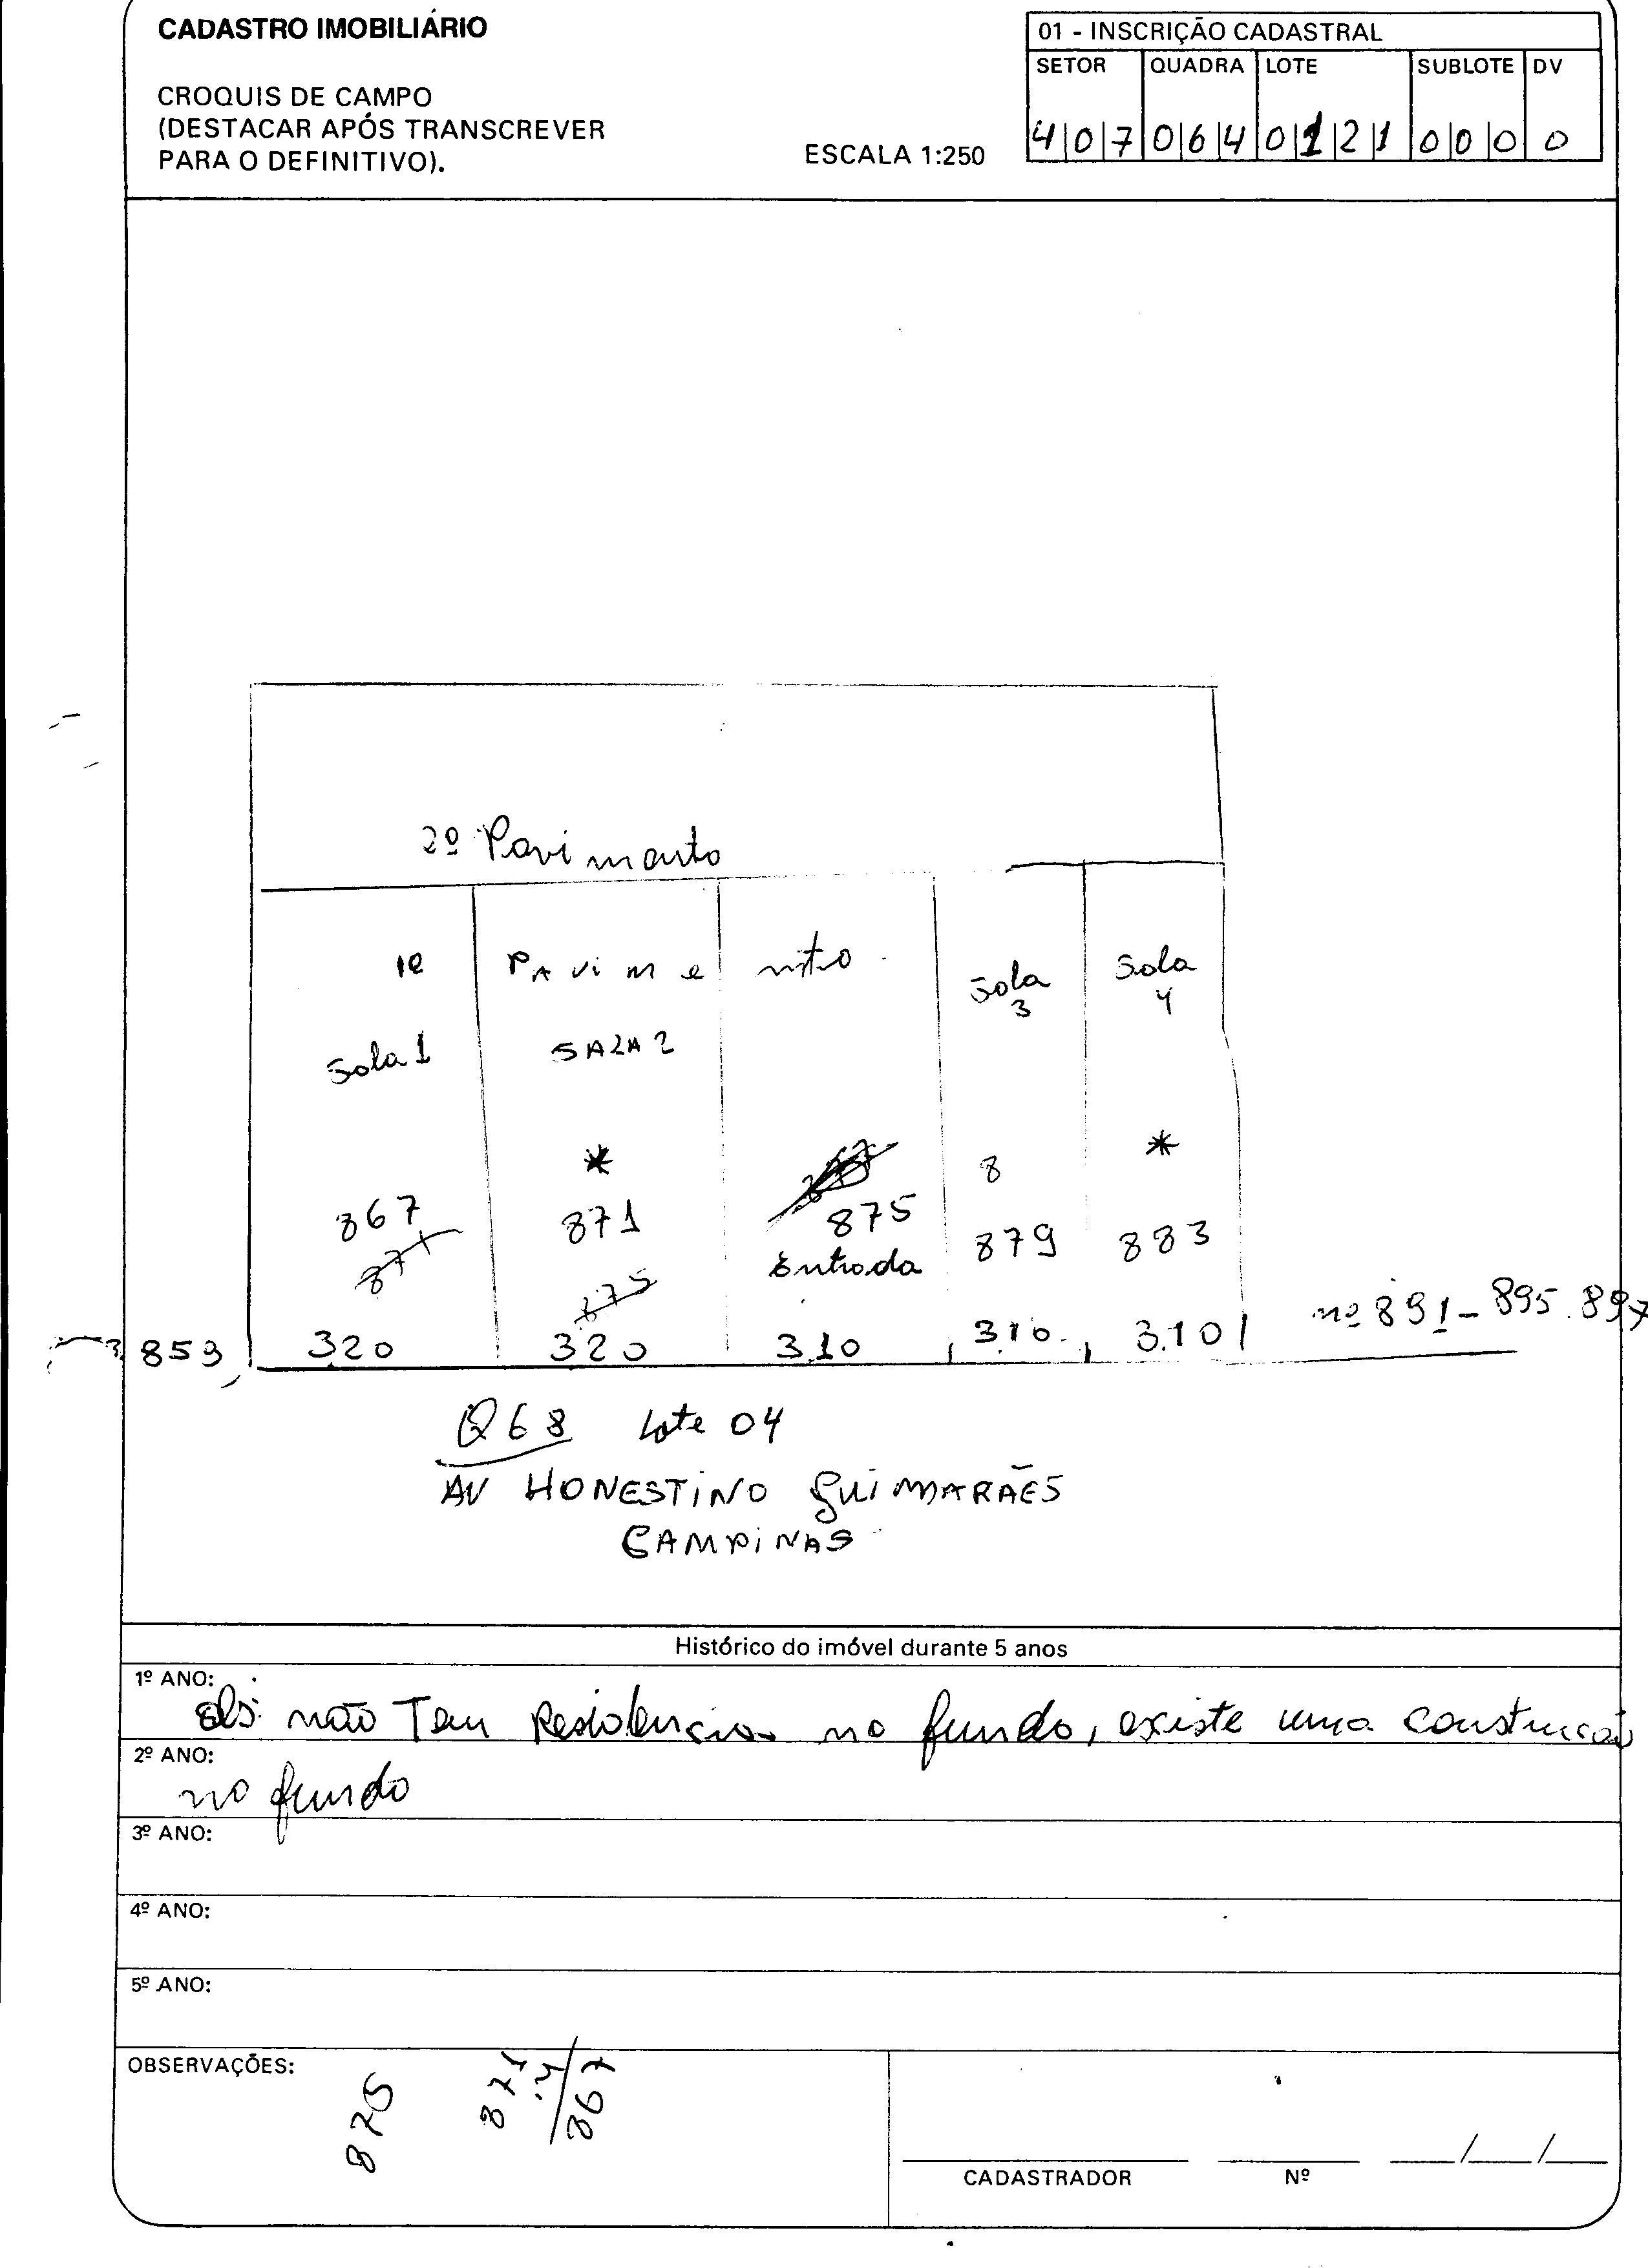 CADASTRO IMOBILIÁRIO
CROQUIS DE CAMPO
(DESTACAR APÓS TRANSCREVER
PARA O DEFINITIVO).
ESCALA 1:250
01 - INSCRIÇÃO CADASTRAL
SETOR QUADRA LOTE SUBLOTE DV
4 0 7 0 6 4 0 1 2 1 0 0 0 0
2º Pavimento
1º PAvimento
Sala 1
SALA 2
Sala 3
Sala 4
* 8 *
867 871 875 879 883
871 Entrada
875
nº 891 - 895. 897
859 3.20 3.20 3.10 3.10 3.10
Q68 Lote 04
AV HONESTINO GUIMARÃES
CAMPINAS
Histórico do imóvel durante 5 anos
1º ANO:
obs: não Tem Residencia no fundo, existe uma construção
2º ANO:
no fundo
3º ANO:
4º ANO:
5º ANO:
OBSERVAÇÕES:
875
871
4
867
CADASTRADOR Nº